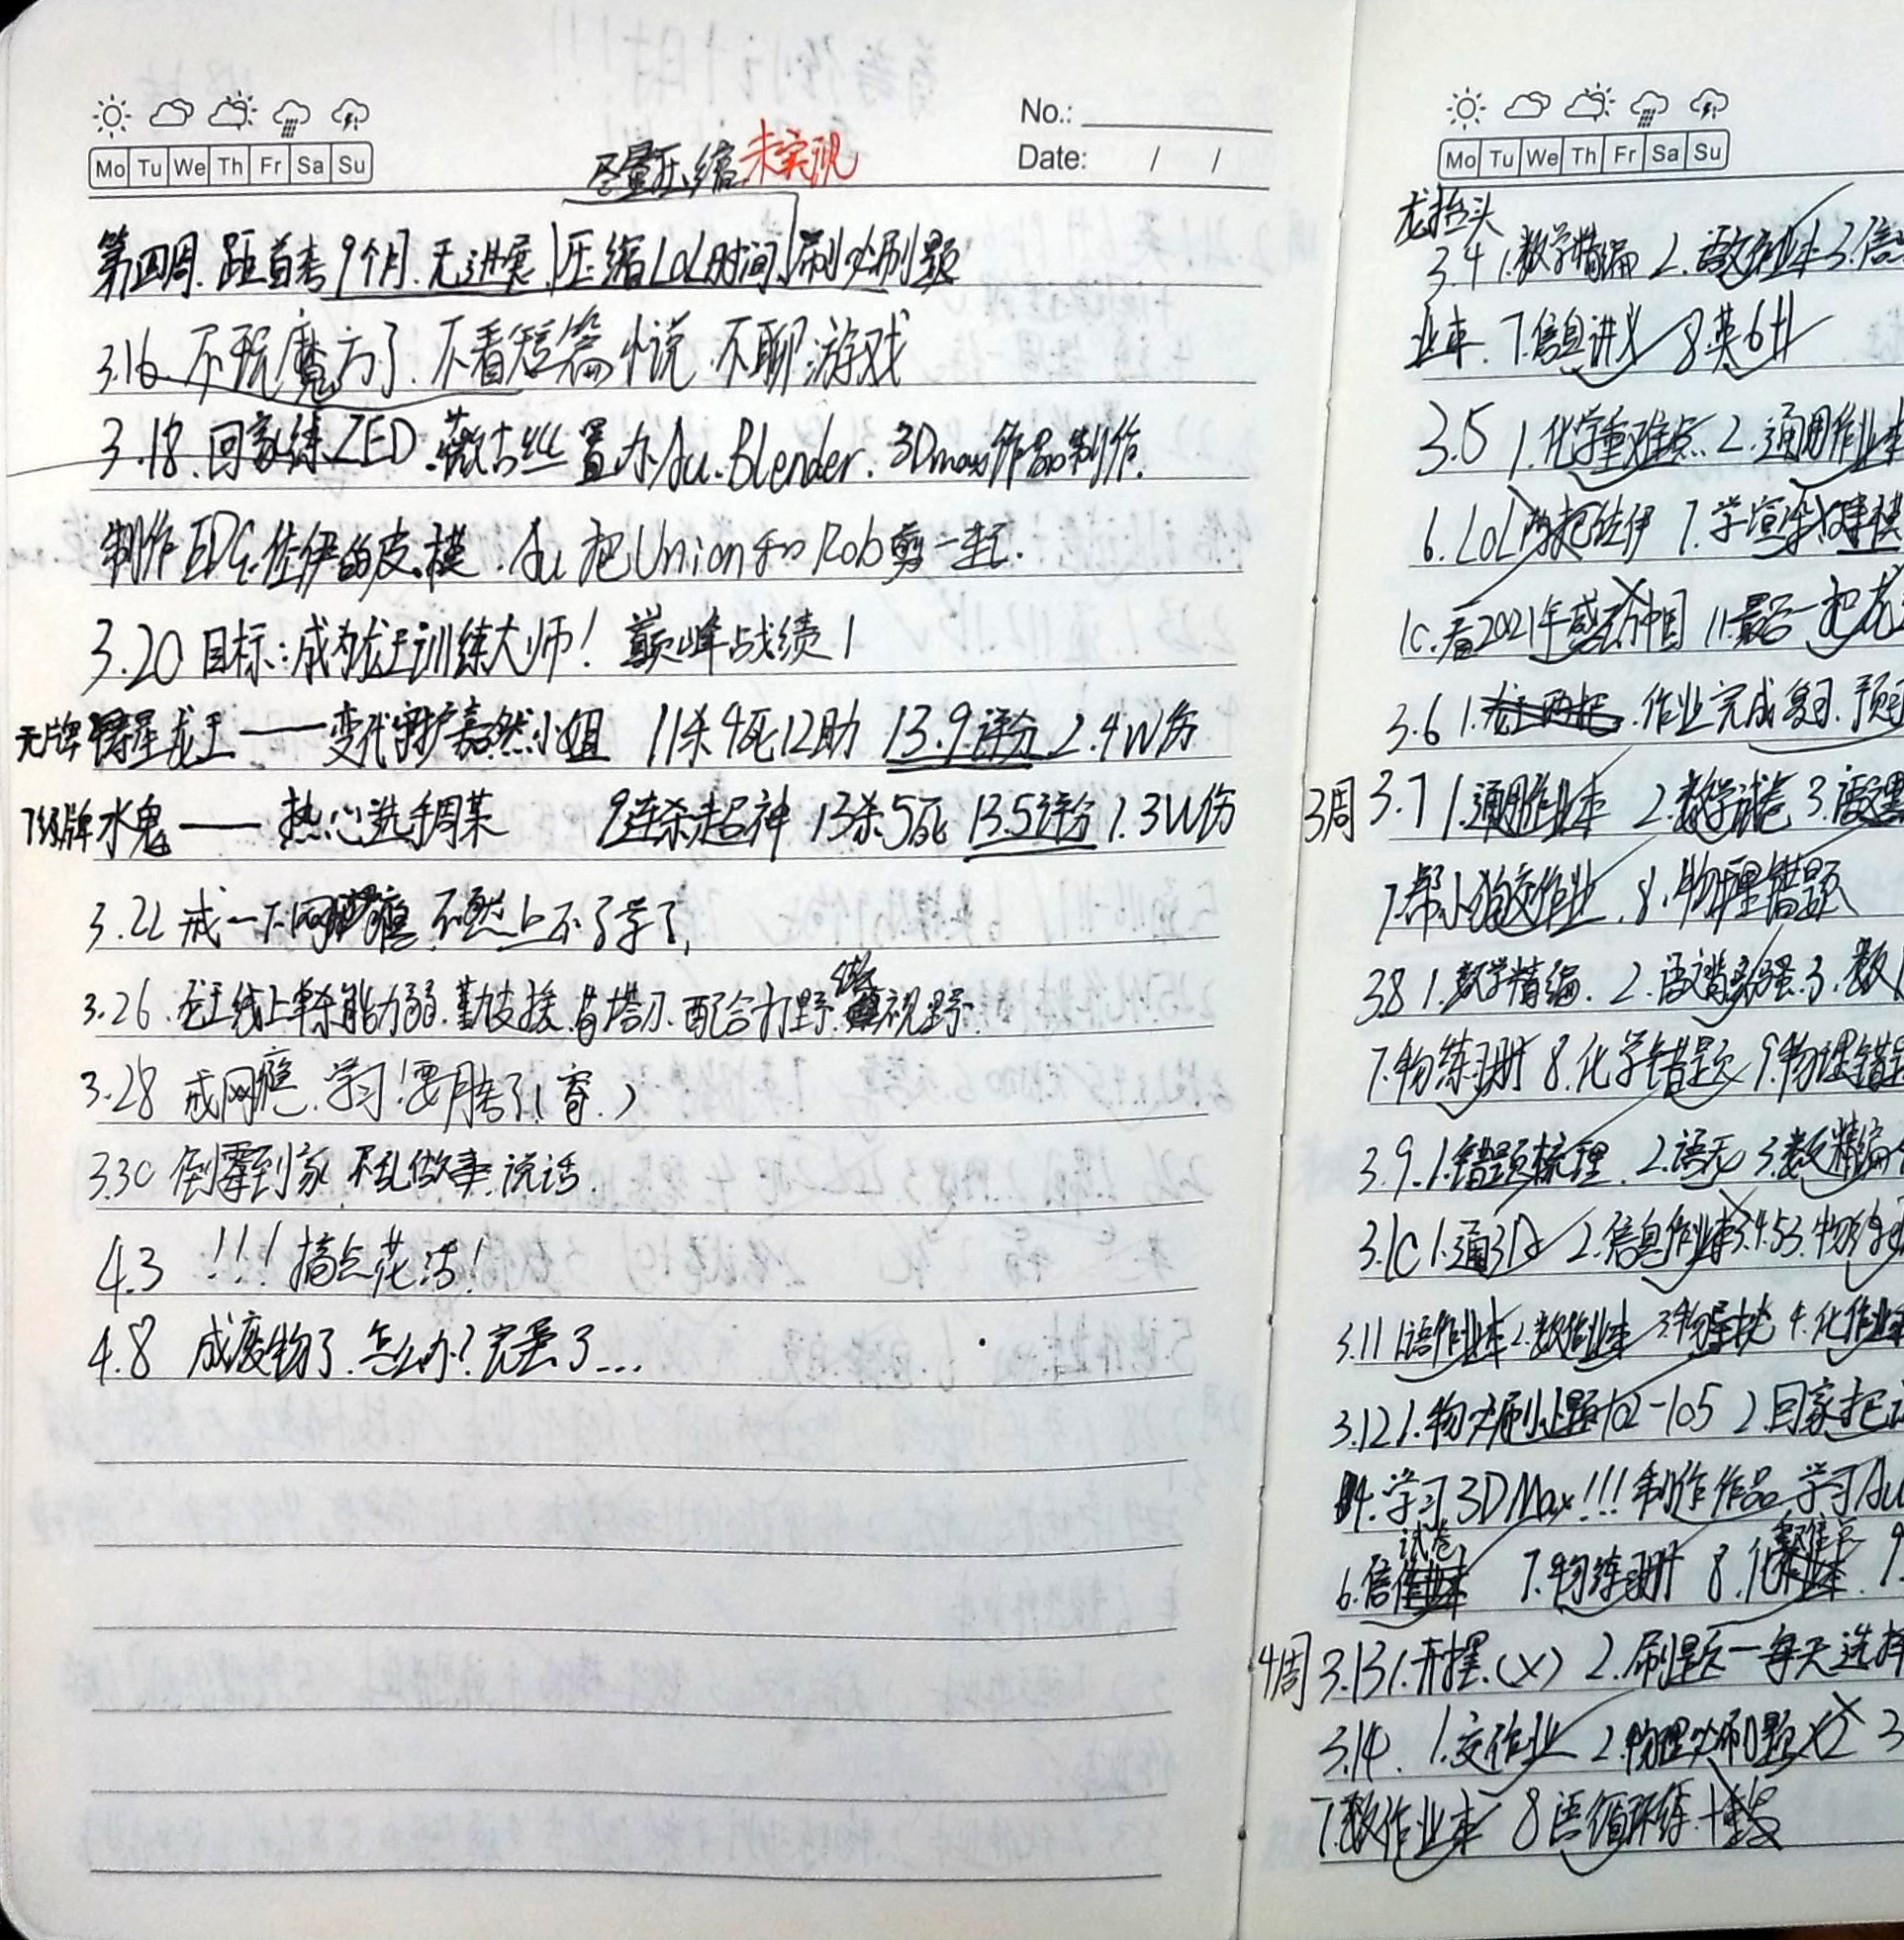 No.:
Date: / /
Mo Tu We Th Fr Sa Su
尽量压缩 未实现
第四周. 距首考9个月. 无进展 压缩LOL时间 刷必刷题
3.16. 不玩魔方了. 不看短篇小说. 不聊游戏
3.18. 回家练ZED. 薇古丝 置办Au. Blender. 3Dmax作品制作.
制作EDG.佐伊的皮.模. Au 把Union和Rob剪一起.
3.20 目标:成为龙王训练大师! 巅峰战绩!
无牌 铸星龙王——变代守护嘉然小姐 11杀4死12助 13.9评分 2.4W伤
7级牌 水鬼—— 热心选手周某 9连杀超神 13杀5死 13.5评分 1.3W伤
3.22 戒一下网瘾. 不然上不了学了,
3.26. 龙王线上单杀能力弱. 勤支援. 皆塔刀. 配合打野. 做视野.
3.28 戒网瘾. 学习!要月考了!(寄.)
3.30 倒霉到家 不乱做事.说话.
4.3 !!!搞点花活!
4.8 成废物了.怎么办?完蛋了...
Mo Tu We Th Fr Sa Su
龙抬头
3.4 1.数学精编 2.语文作业本 3.信
业本. 7.信息讲义 8英6廿
3.5 1.化学重难点. 2.通用作业本
6.LOL两把佐伊 7.学渲染 建模
10.看2021年感动中国 11.最后一把龙
3.6 1. 作业完成 复习. 预习
3周 3.7 1.通用作业本 2.数学试卷 3.
7.帮小狗交作业. 8.物理错题
3.8 1.数学精编. 2.语 3.数
7.物练习册 8.化学错题 9.物理错题
3.9. 1.错题梳理 2.语 3.数精编
3.10 1.通3D 2.信息作业本 3.物
3.11 1.语作业本 2.数作业本 3.物 4.化作业
3.12 1.物必刷小题102-105 2.回家把
4.学习3DMax!!!制作作品 学习Au
试卷 重难点
6.信 7.物练习册 8.化 9.
4周 3.13 1.开摆.(×) 2.刷题一每天选择
3.14. 1.交作业 2.物理必刷题×2 3
7.数作业本 8语循环练